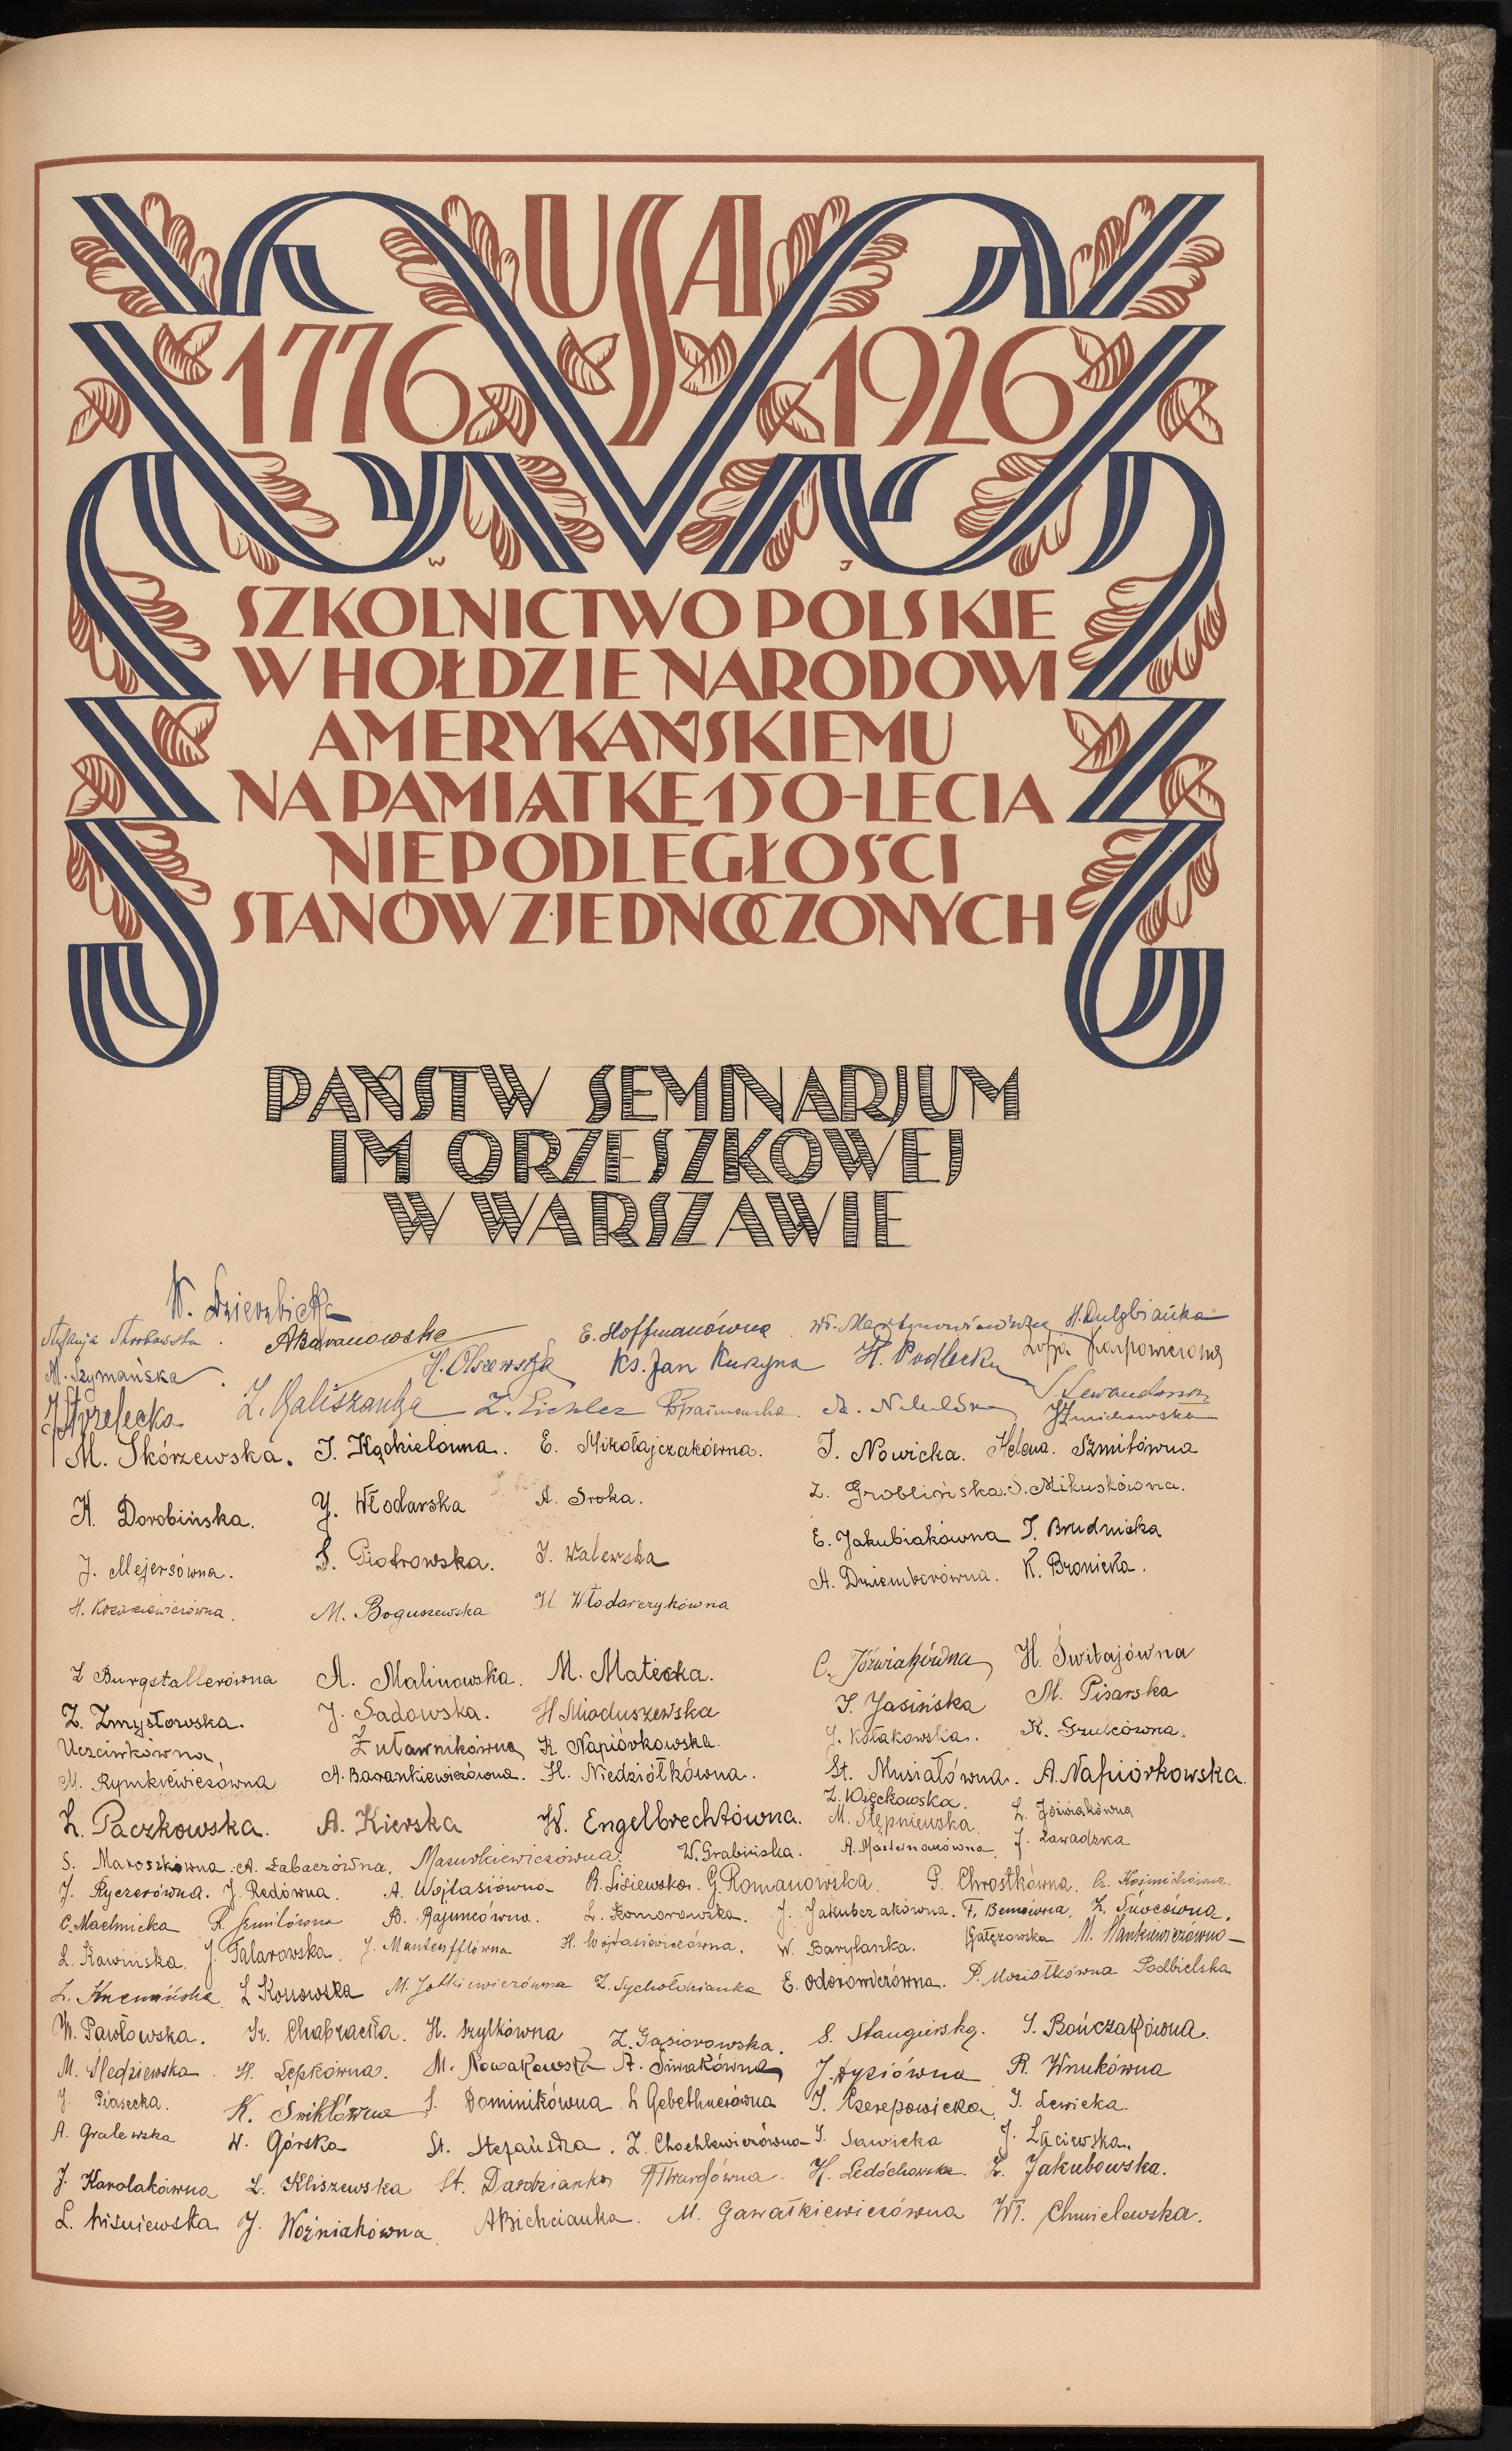 USA
1776 1926
W J
SZKOLNICTWO POLSKIE
W HOŁDZIE NARODOWI
AMERYKAŃSKIEMU
NA PAMIĄTKĘ 150-LECIA
NIEPODLEGŁOŚCI
STANÓW ZJEDNOCZONYCH
PAŃSTW SEMINARJUM
IM ORZESZKOWEJ
W WARSZAWIE
W. Dzierzbicka
E. Hoffmanówna
M. Szymańska H. Olszewska Ks. Jan Kuszyna
J. Strzelecka Z. Kaliszanka Z. Eichler
M. Skórzewska. J. Kądzielanna. E. Mikołajczakówna. J. Nowicka. Helena Szmitówna
K. Dorobińska. Y. Włodarska A. Sroka. Z. Groblińska. S. Mikuskówna.
J. Mejersówna. S. Piotrowska. J. Walewska E. Jakubiakówna J. Brudnicka
M. Boguszewska H. Włodarczykówna A. Dziemborówna. K. Bronicka.
Z Burgstallerówna A. Malinowska. M. Matecka. C. Jóźwiakówna H. Świtajówna
Z. Zmysłowska. J. Sadowska. H Mioduszewska J. Jasińska M. Pisarska
Uczciwkówna, Żuławnikówna K Napiórkowska. J. Kołakowska.
M. Rymkiewiczówna A. Barankiewiczówna. H. Niedziółkówna. St. Musiałówna. A. Napiórkowska.
Z. Więckowska.
Z. Paczkowska. A. Kierska W. Engelbrechtówna. M. Stępniewska. Z. Jóźwiakówna
S. Maroszkówna. A. Łabaczówna. Mazurkiewiczówna. W. Grabińska. J. Zawadzka
J. Ryczerówna. J. Redówna. A. Wojtasiówna R. Lisiewska. G. Romanowska. P. Chrostkówna.
C. Machnicka R. Szmitówna B. Rajmicówna. L. Komorowska. J. Jakubczakówna. F. Bemówna.
L. Kawińska. J. Talarowska. J. Manteufflówna H. Wojtasiewiczówna. W. Barylanka. Gałęzowska M. Mankiewiczówna
L. Kossowska M. Jotkiewiczówna Z. Sychołdzianka E. Odorowiczówna. P. Mosiołkówna Podbielska
W. Pawłowska. Ir. Chabracka. H. Szylkówna Z. Gąsiorowska. S. Staugirska. S. Bończakówna.
M. Śledziewska. H. Lepkówna. M. Nowakowska A. Siwakówna J. Dyziówna R. Wnukówna
J. Piasecka. K. Ćwiklówna J. Dominikówna. L Gebethnerówna J. Czerepowicka. J. Lewicka.
A. Gralewska W. Górska St. Stefańska. Z. Chochlewiczówna J. Sawicka J. Łąciewska.
J. Karolakówna Z. Kliszewska St. Dardzianka H. Ledóchowska. Z. Jakubowska.
L. Wiśniewska J. Woźniakówna. A Bichcianka. M. Gawałkiewiczówna Wł. Chmielewska.